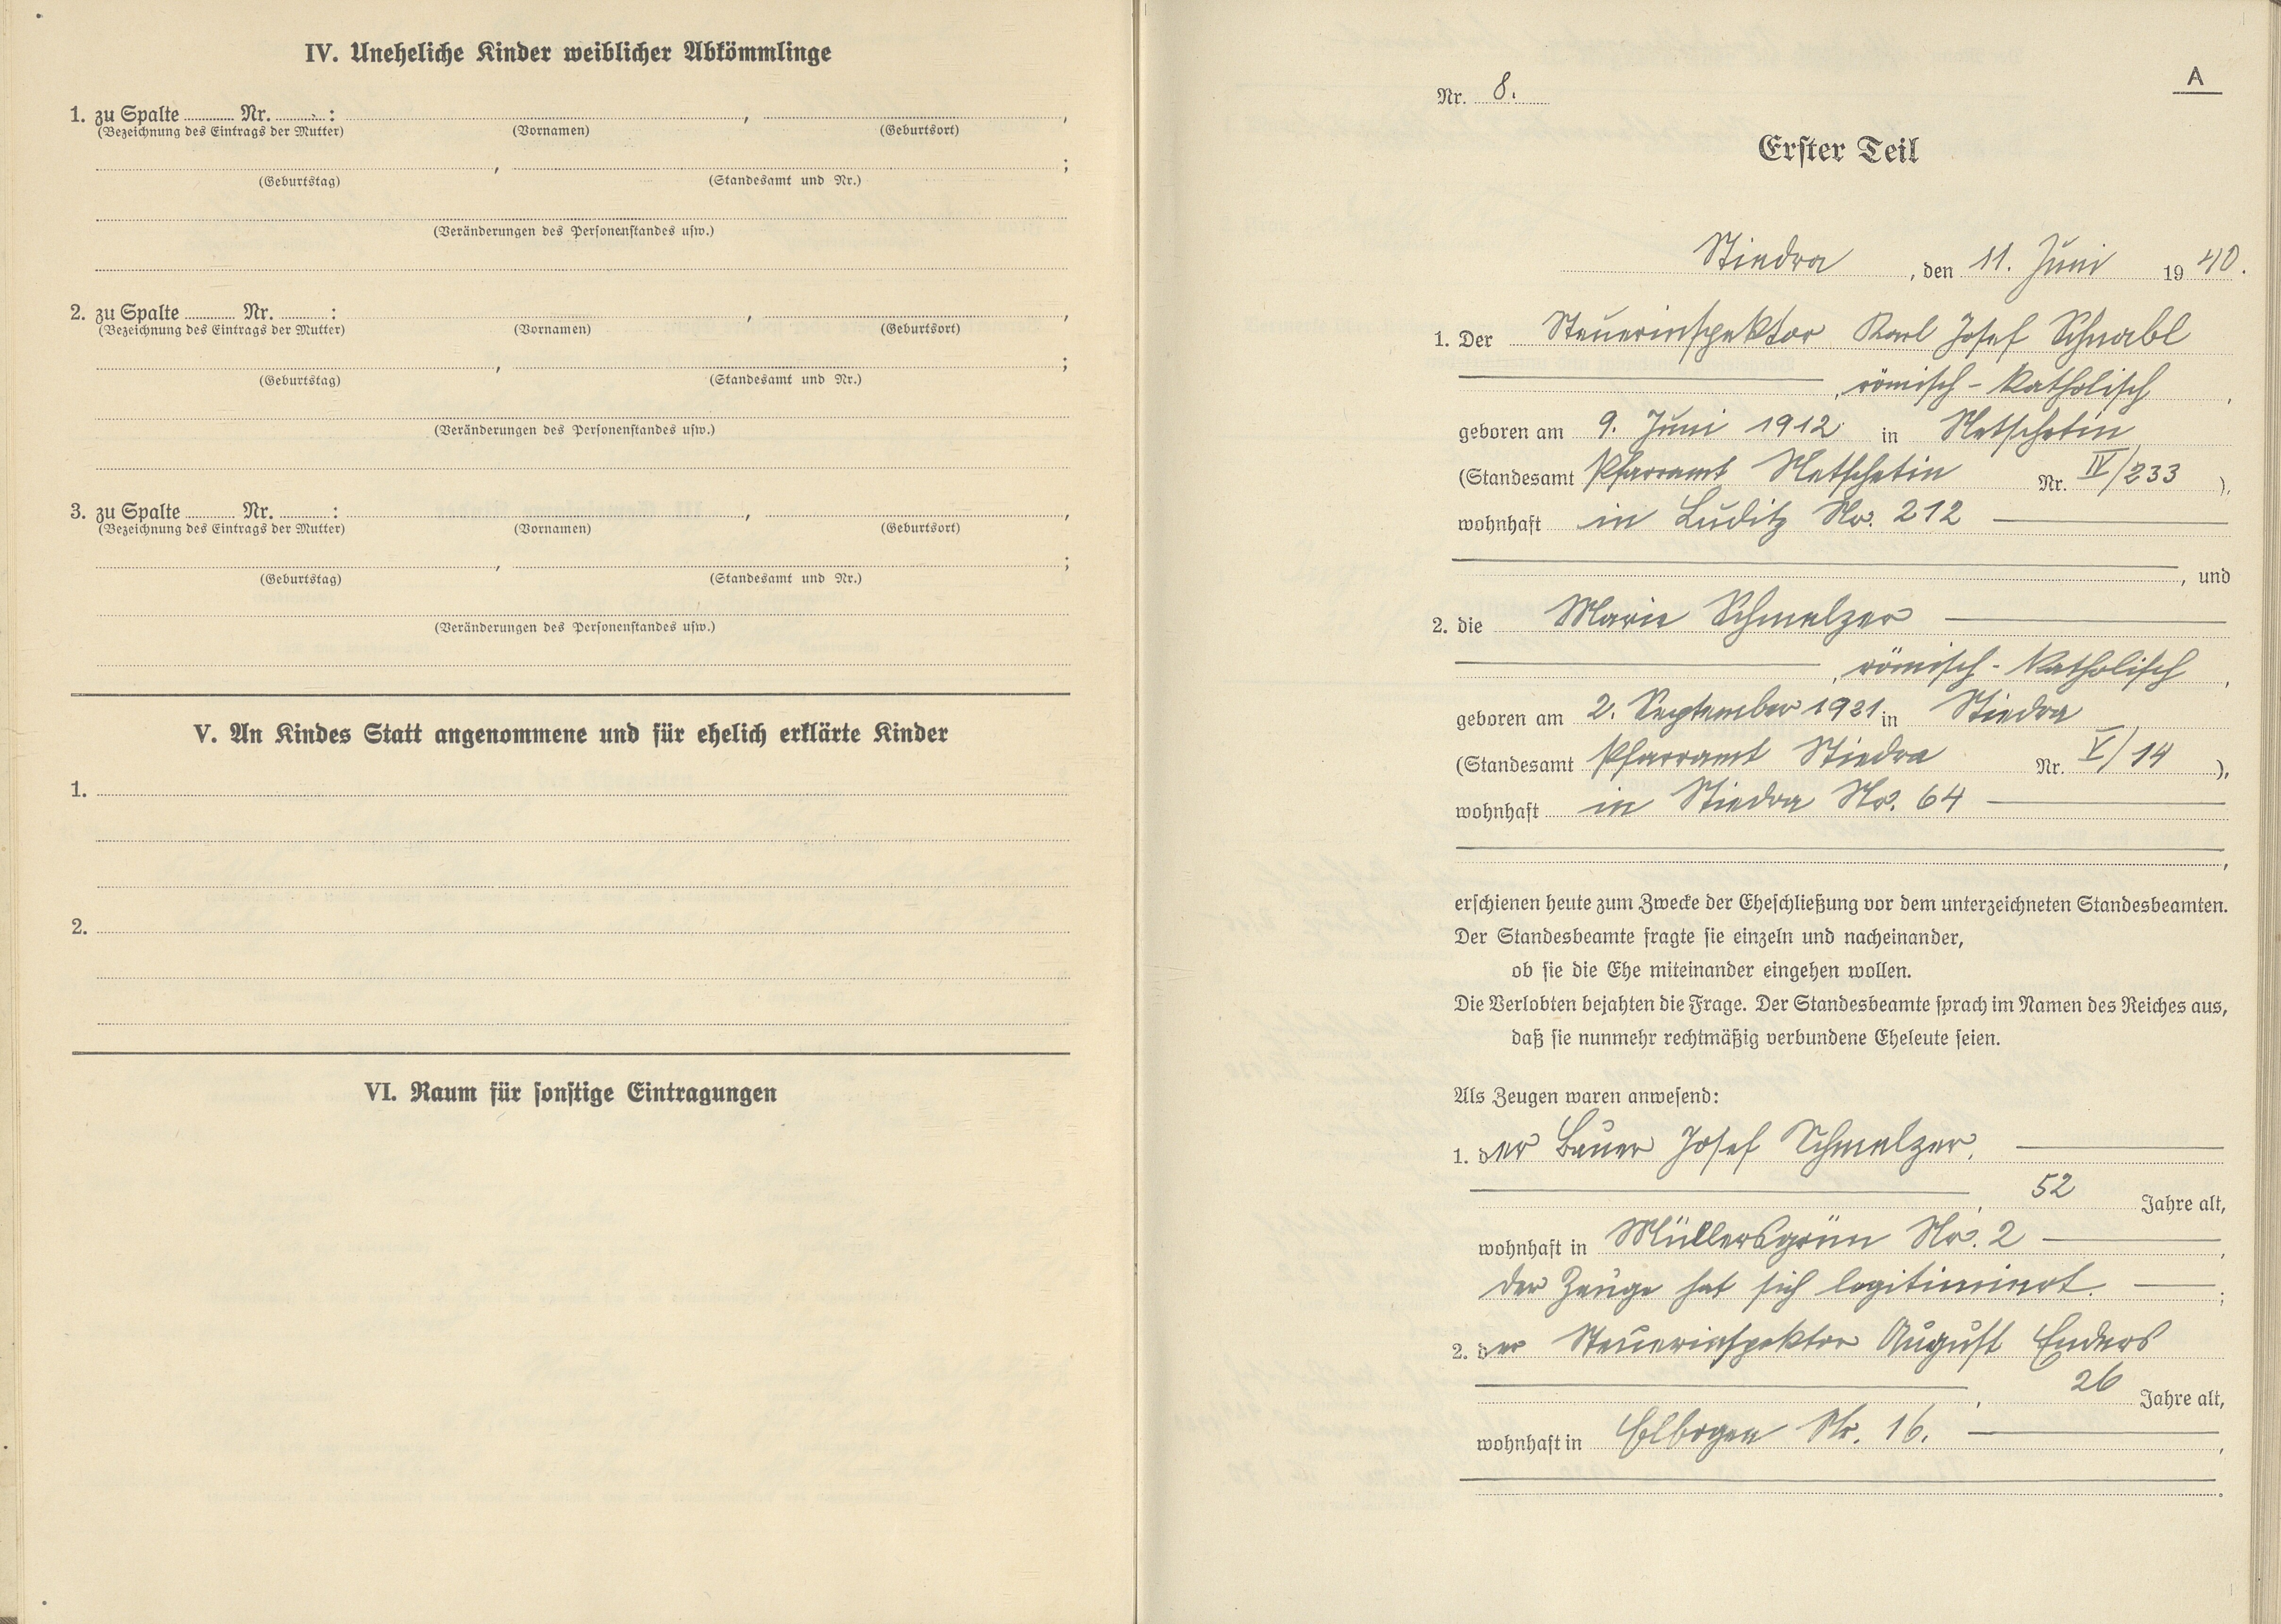 IV. Uneheliche Kinder weiblicher Abkömmlinge
1. zu Spalte ........ Nr. ........ : , ,
(Bezeichnung des Eintrags der Mutter) (Vornamen) (Geburtsort)
, ;
(Geburtstag) (Standesamt und Nr.)
(Veränderungen des Personenstandes usw.)
2. zu Spalte ........ Nr. ........ : , ,
(Bezeichnung des Eintrags der Mutter) (Vornamen) (Geburtsort)
, ;
(Geburtstag) (Standesamt und Nr.)
(Veränderungen des Personenstandes usw.)
3. zu Spalte ........ Nr. ........ : , ,
(Bezeichnung des Eintrags der Mutter) (Vornamen) (Geburtsort)
, ;
(Geburtstag) (Standesamt und Nr.)
(Veränderungen des Personenstandes usw.)
V. An Kindes Statt angenommene und für ehelich erklärte Kinder
1.
2.
VI. Raum für sonstige Eintragungen
A
Nr. 8.
Erster Teil
Stiedra, den 11. Juni 1940.
1. Der Steuerinspektor Karl Josef Schnabl
, römisch-katholisch,
geboren am 9. Juni 1912 in Netschetin
(Standesamt Pfarramt Netschetin Nr. IV/233),
wohnhaft in Luditz Nr. 212
, und
2. die Marie Schmelzer
, römisch-katholisch,
geboren am 2. September 1921 in Stiedra
(Standesamt Pfarramt Stiedra Nr. V/14),
wohnhaft in Stiedra Nr. 64
,
erschienen heute zum Zwecke der Eheschließung vor dem unterzeichneten Standesbeamten.
Der Standesbeamte fragte sie einzeln und nacheinander,
ob sie die Ehe miteinander eingehen wollen.
Die Verlobten bejahten die Frage. Der Standesbeamte sprach im Namen des Reiches aus,
daß sie nunmehr rechtmäßig verbundene Eheleute seien.
Als Zeugen waren anwesend:
1. der Bauer Josef Schmelzer,
, 52 Jahre alt,
wohnhaft in Müllersgrün Nr. 2,
der Zeuge hat sich legitimiert. ;
2. der Steuerinspektor August Enders
, 26 Jahre alt,
wohnhaft in Elbogen Nr. 16. ,
.